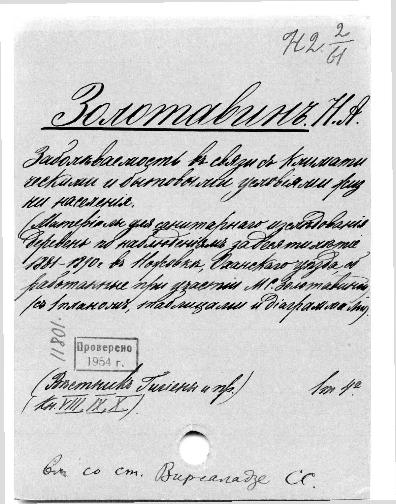 Н2. 2/61
Золотавинъ. Н. А.
Заболѣваемость въ связи съ климати
ческими и бытовыми условіями жиз
ни населенія.
(Матеріалъ для санитарнаго изслѣдованія
деревень по наблюденіямъ за десятилѣтіе
1881-1890 г. въ Ножовкѣ, Оханскаго уѣзда об
работанные при участіи М. С. Золотавиной
(съ 1 планомъ, таблицами и діаграммами).
11801
Проверено
1954 г.
(Вѣстникъ Гигіены и пр.)
(Кн. VIII, IX, X.)
1 т. 4°
Вм со ст. Вирсаладзе СС.